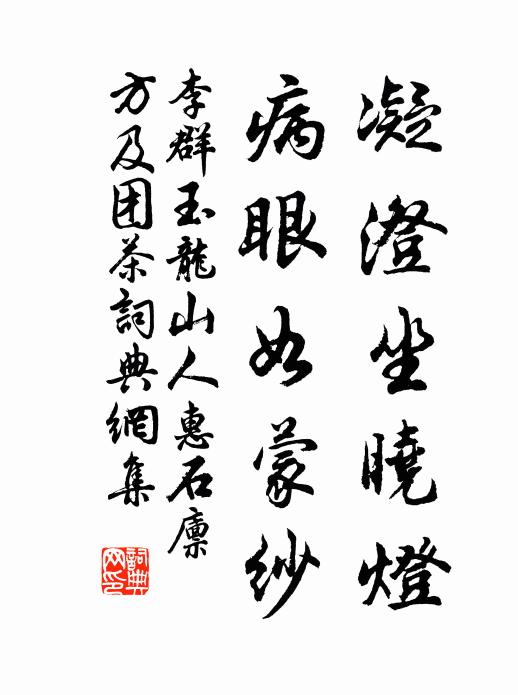 凝澄坐曉燈
病眼如蒙紗
李群玉龍山人惠石廪
方及团茶詞典網集
詞典网印